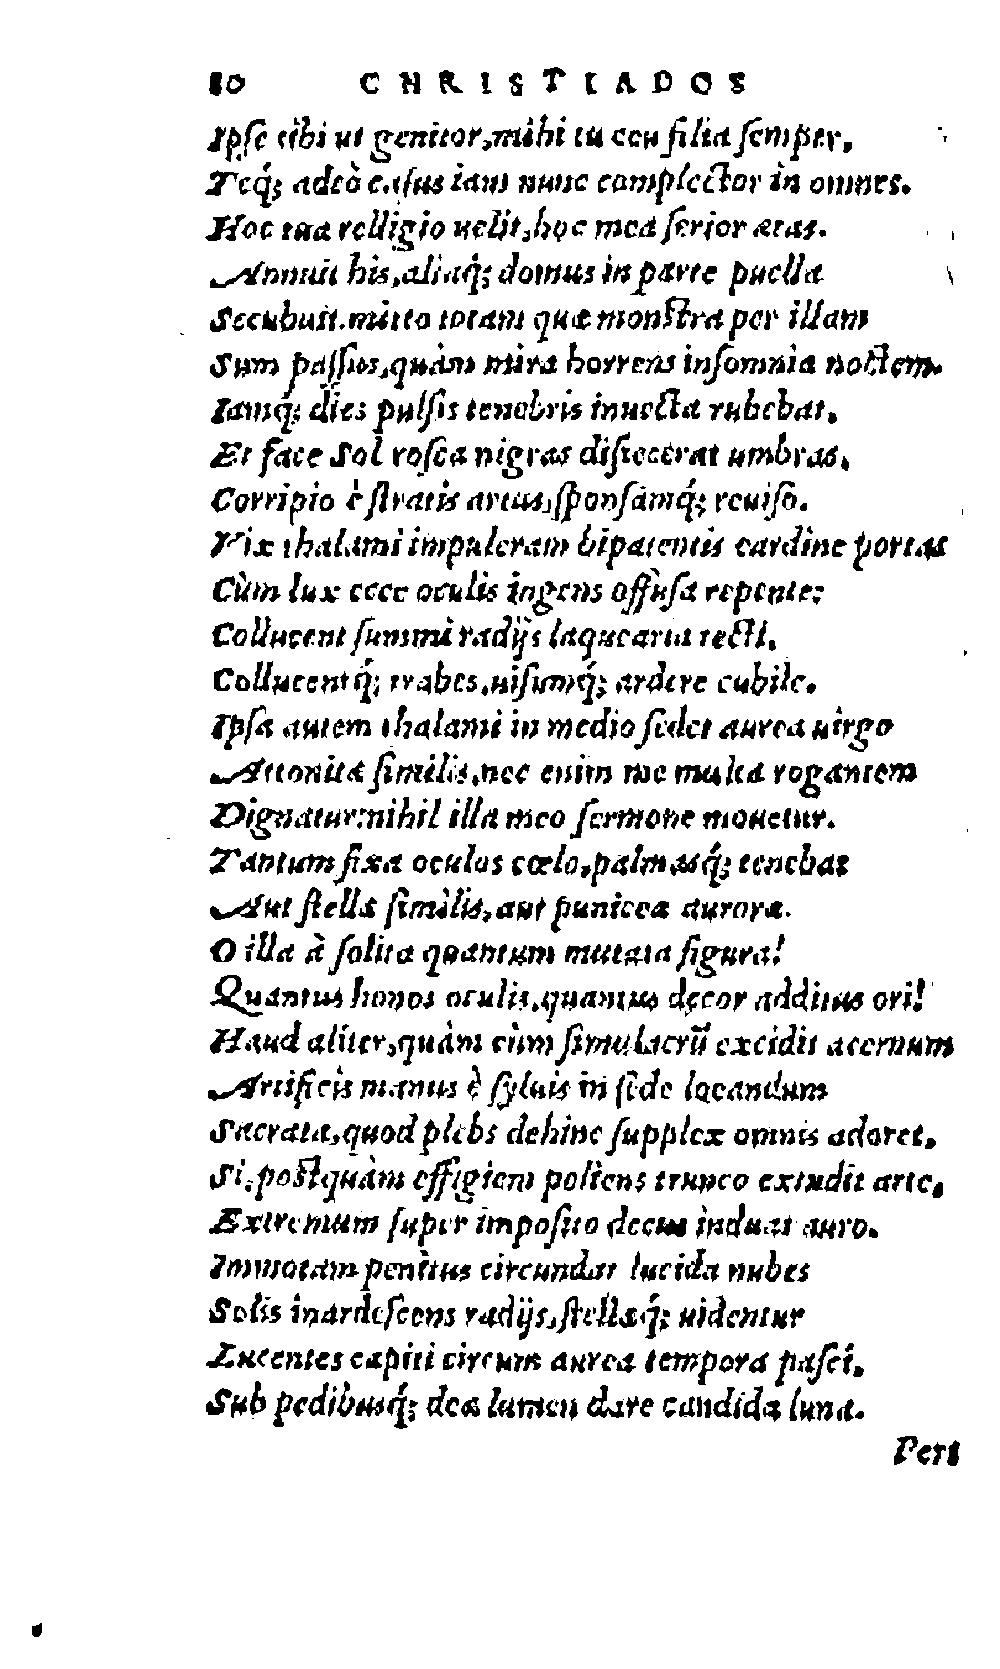 80 CHRISTIADOS
Ipſe tibi ut genitor, mihi tu ceu filia ſemper,
Teq́; adeò caſus iam nunc complector in omnes.
Hoc tua relligio uelit, hoc mea ſerior ætas.
Annuit his, aliaq́; domus in parte puella
Secubuit. mitto totam quæ monſtra per illam
Sum paſſus, quàm mira horrens inſomnia noctem.
Iamq́; dies pulſis tenebris inuecta rubebat,
Et face Sol roſea nigras diſiecerat umbras,
Corripio è ſtratis artus, ſponſámq́; reuiſo.
Vix thalami impuleram bipatentis cardine portas
Cùm lux ecce oculis ingens offuſa repente:
Collucent ſummi radijs laquearia tecti,
Collucentq́; trabes, uiſumq́; ardere cubile.
Ipſa autem thalami in medio ſedet aurea uirgo
Attonitæ ſimilis, nec enim me multa rogantem
Dignatur: nihil illa meo ſermone mouetur.
Tantum fixa oculos cœlo, palmasq́; tenebat
Aut ſtellæ ſimilis, aut puniceæ auroræ.
O illa à ſolita quantum mutata figura!
Quantus honos oculis, quantus decor additus ori!
Haud aliter, quàm cùm ſimulacrũ excidit acernum
Artificis manus è ſyluis in ſede locandum
Sacrata, quod plebs dehinc ſupplex omnis adoret,
Si, poſtquàm effigiem poliens trunco extudit arte,
Extremum ſuper impoſito decus induat auro.
Immotam penitus circundat lucida nubes
Solis inardeſcens radijs, ſtellæq́; uidentur
Lucentes capiti circum aurea tempora paſci,
Sub pedibusq́; dea lumen dare candida luna.
Pert